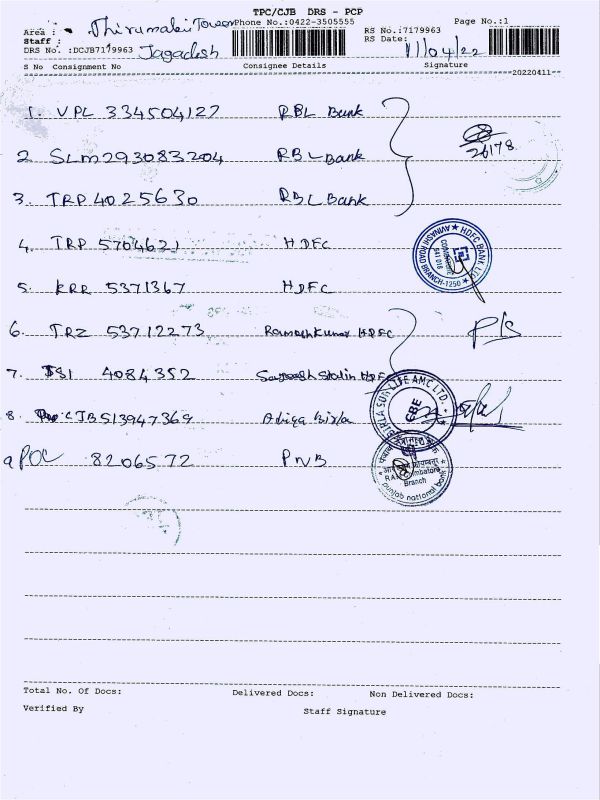 TPC/CJB DRS - PCP
Area : Thirumalai Tower Phone No.:0422-3505555 Page No.:1
Staff : Jagadesh RS No.:7179963
DRS No. :DCJB7179963 RS Date: 11/04/22
S No Consignment No Consignee Details Signature
20220411
1. VPL 334504127 RBL Bank
2 SLM293083204 RBL Bank 26178
3. TRP 4025630 RBL Bank
4. TRP 5704621 HDFC
HDFC BANK LTD. AVINASHI ROAD BRANCH-1250 COIMBATORE 641 018
5. KRR 5371367 HDFC
6. TRZ 53712273 Ramesh Kumar HDFC
7. 4084352 Stalin HDFC
BIRLA SUN LIFE AMC LTD. CBE
8. CJB513947369 Aditya Birla
9 POC 8206572 PNB
punjab national bank Branch
Total No. Of Docs: Delivered Docs: Non Delivered Docs:
Verified By Staff Signature